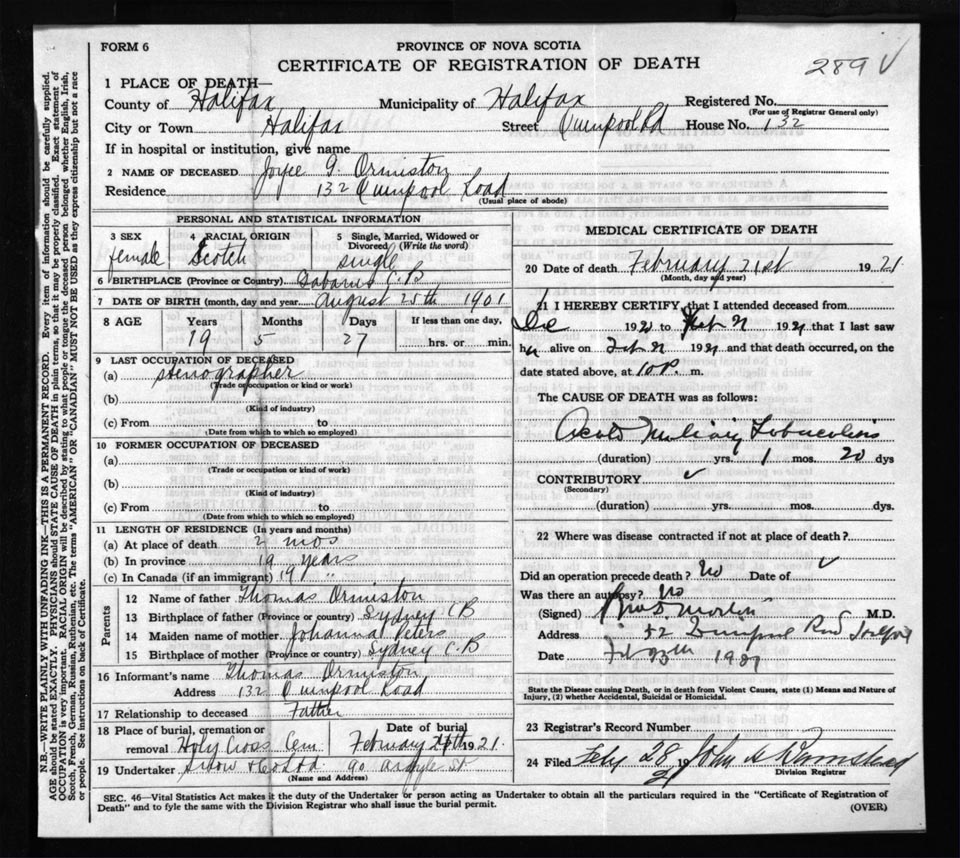 FORM 6
PROVINCE OF NOVA SCOTIA
CERTIFICATE OF REGISTRATION OF DEATH
289 V
1 PLACE OF DEATH—
County of Halifax Municipality of Halifax Registered No.
(For use of Registrar General only)
City or Town Halifax Street Quinpool Rd House No. 132
If in hospital or institution, give name
2 NAME OF DECEASED Joyce G. Ormiston
Residence 132 Quinpool Road
(Usual place of abode)
PERSONAL AND STATISTICAL INFORMATION
3 SEX 4 RACIAL ORIGIN 5 Single, Married, Widowed or Divorced (Write the word)
female Scotch single
6 BIRTHPLACE (Province or Country) Gabarus C.B
7 DATE OF BIRTH (month, day and year) August 25th 1901
8 AGE Years Months Days If less than one day,
19 5 27 hrs. or min.
9 LAST OCCUPATION OF DECEASED
(a) stenographer
(Trade or occupation or kind or work)
(b)
(Kind of industry)
(c) From to
(Date from which to which so employed)
10 FORMER OCCUPATION OF DECEASED
(a)
(Trade or occupation or kind or work)
(b)
(Kind of industry)
(c) From to
(Date from which to which so employed)
11 LENGTH OF RESIDENCE (In years and months)
(a) At place of death 2 mos
(b) In province 19 years
(c) In Canada (if an immigrant) 19 "
Parents
12 Name of father Thomas Ormiston
13 Birthplace of father (Province or country) Sydney CB
14 Maiden name of mother Johanna Peters
15 Birthplace of mother (Province or country) Sydney C.B
16 Informant's name Thomas Ormiston
Address 132 Quinpool Road
17 Relationship to deceased Father
18 Place of burial, cremation or removal Holy Cross Cem Date of burial February 1921.
19 Undertaker Snow & Co Ltd 90 Argyle St
(Name and Address)
MEDICAL CERTIFICATE OF DEATH
20 Date of death February 21st 1921
(Month, day and year)
21 I HEREBY CERTIFY, that I attended deceased from
Dec 1920 to Feb 21 1921 that I last saw
her alive on Feb 21 1921 and that death occurred, on the
date stated above, at m.
The CAUSE OF DEATH was as follows:
Acute Miliary Tuberculosis
(duration) yrs. 1 mos. 20 dys
CONTRIBUTORY ✓
(Secondary)
(duration) yrs. mos. dys.
22 Where was disease contracted if not at place of death?
Did an operation precede death? No Date of ✓
Was there an autopsy? No
(Signed) M.D.
Address 52 Quinpool Road
Date Feb 1921
State the Disease causing Death, or in death from Violent Causes, state (1) Means and Nature of
Injury, (2) whether Accidental, Suicidal or Homicidal.
23 Registrar's Record Number
24 Filed Feby 28 19 John A
Division Registrar
SEC. 46—Vital Statistics Act makes it the duty of the Undertaker or person acting as Undertaker to obtain all the particulars required in the "Certificate of Registration of
Death" and to fyle the same with the Division Registrar who shall issue the burial permit. (OVER)
N.B.—WRITE PLAINLY WITH UNFADING INK—THIS IS A PERMANENT RECORD. Every item of information should be carefully supplied.
AGE should be stated EXACTLY. PHYSICIANS should STATE CAUSE OF DEATH in plain terms, so that it may be properly classified. Exact statement of
OCCUPATION is very important. RACIAL ORIGIN will be described by stating to what people or tongue the deceased person belonged whether English, Irish,
Scotch, French, German, Russian, Ruthenian, etc. The terms "AMERICAN" OR "CANADIAN" MUST NOT BE USED as they express citizenship but not a race
or people. See instructions on back of Certificate.